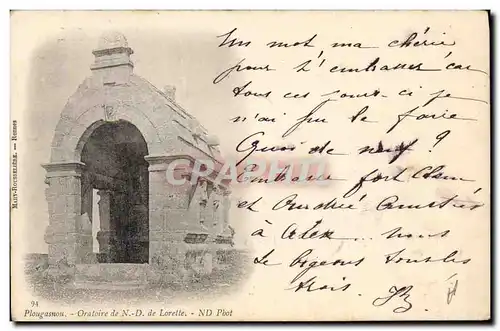 Un mot ma chérie
pour t'embrasser car
tous ces jours-ci je
n'ai pu le faire
Quoi de neuf ?
Embrasse fort
et André
à
nous
tous les
trois.
CPA
MARY-ROUSSELIÈRE. — Rennes
94
Plougasnou. - Oratoire de N.-D. de Lorette. - ND Phot